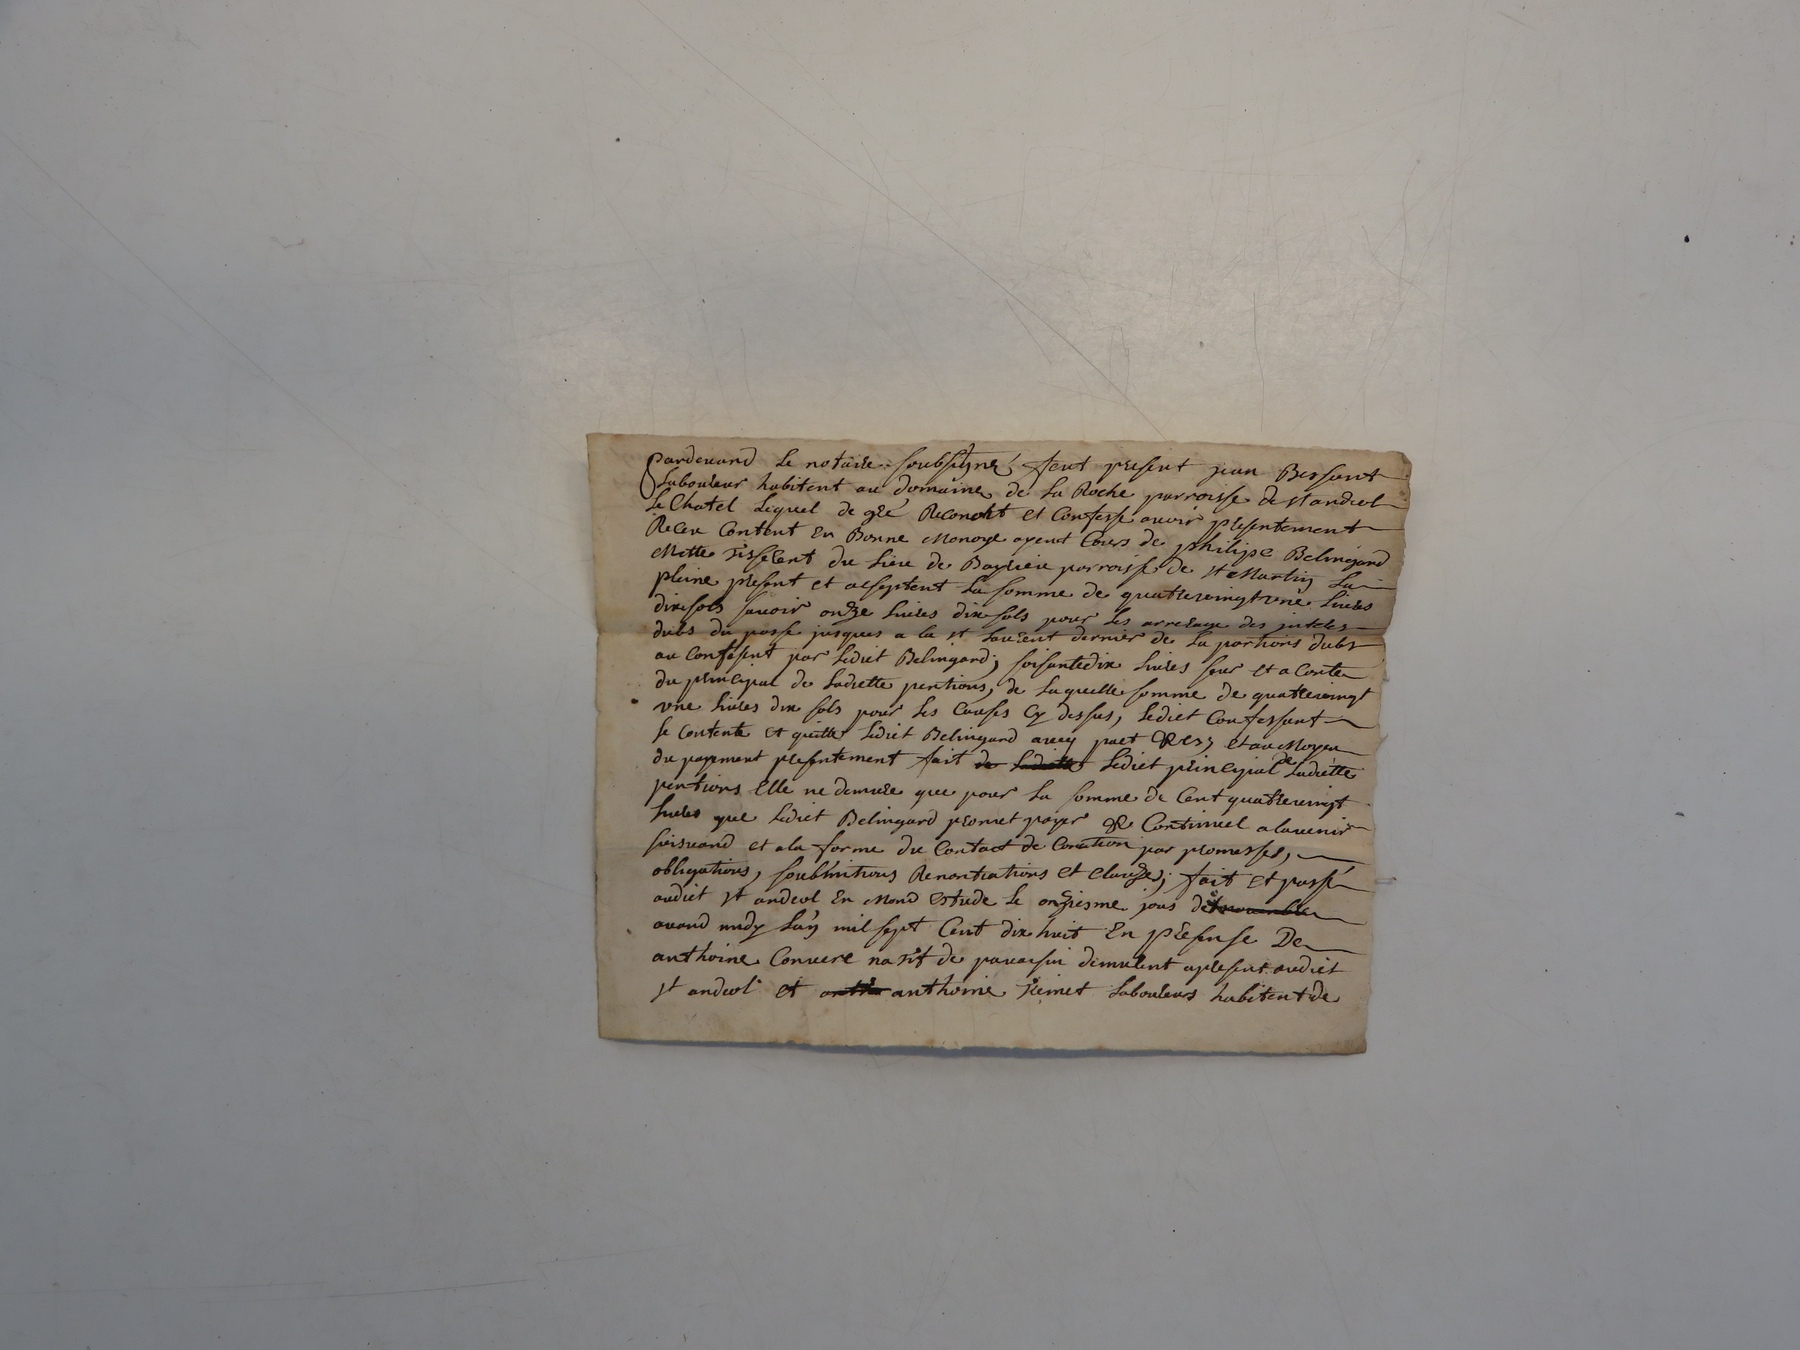 Pardevand le notaire soubsigné, feut present jean Bessant
Laboulleur habitent au domaine de La Roche parroisse de st andeol
Le Chatel Lequel de gré Reconoit et Confesse avoir presentement
Receu Content En Bonne Monoye ayent Cours de philipe Belingard
Mette tisserent du Lieu de parroisse de st Martin La
pleine present et aseptent La somme de quatrevingt une Livres
dix sols savoir onze Livres dix sols pour les arrerage des
dubs du passe jusques a la st Laurent dernier de La pantions dubs
au Confesent par Ledict Belingard; soisantedix Livres sour et a Conte
du principal de Ladiette pentions, de Laquelle somme de quatrevingt
une Livres dix sols pour Les Causes Cy dessus, Ledict Confessant
se Contente et quitte Ledict Belingard avecq pact et au Moyen
du payement presentement fait de Ladiette Ledict principal de Ladiette
pentions Elle ne demure que pour La somme de Cent quatrevingt
Livres que Ledict Belingard promet payer & Continuel alavenir
suisvand et ala forme du Contact de par promesses,
obligations, soubmitions Renontiations et clauzes; fait et passé
audict st andeol En Mond Estude Le onziesme jous de novembre
avand midy Lan mil sept Cent dix huit En presense De
anthoine Convere de demulent apresent audict
st andeol et anthoine Laboulleurs habitent de